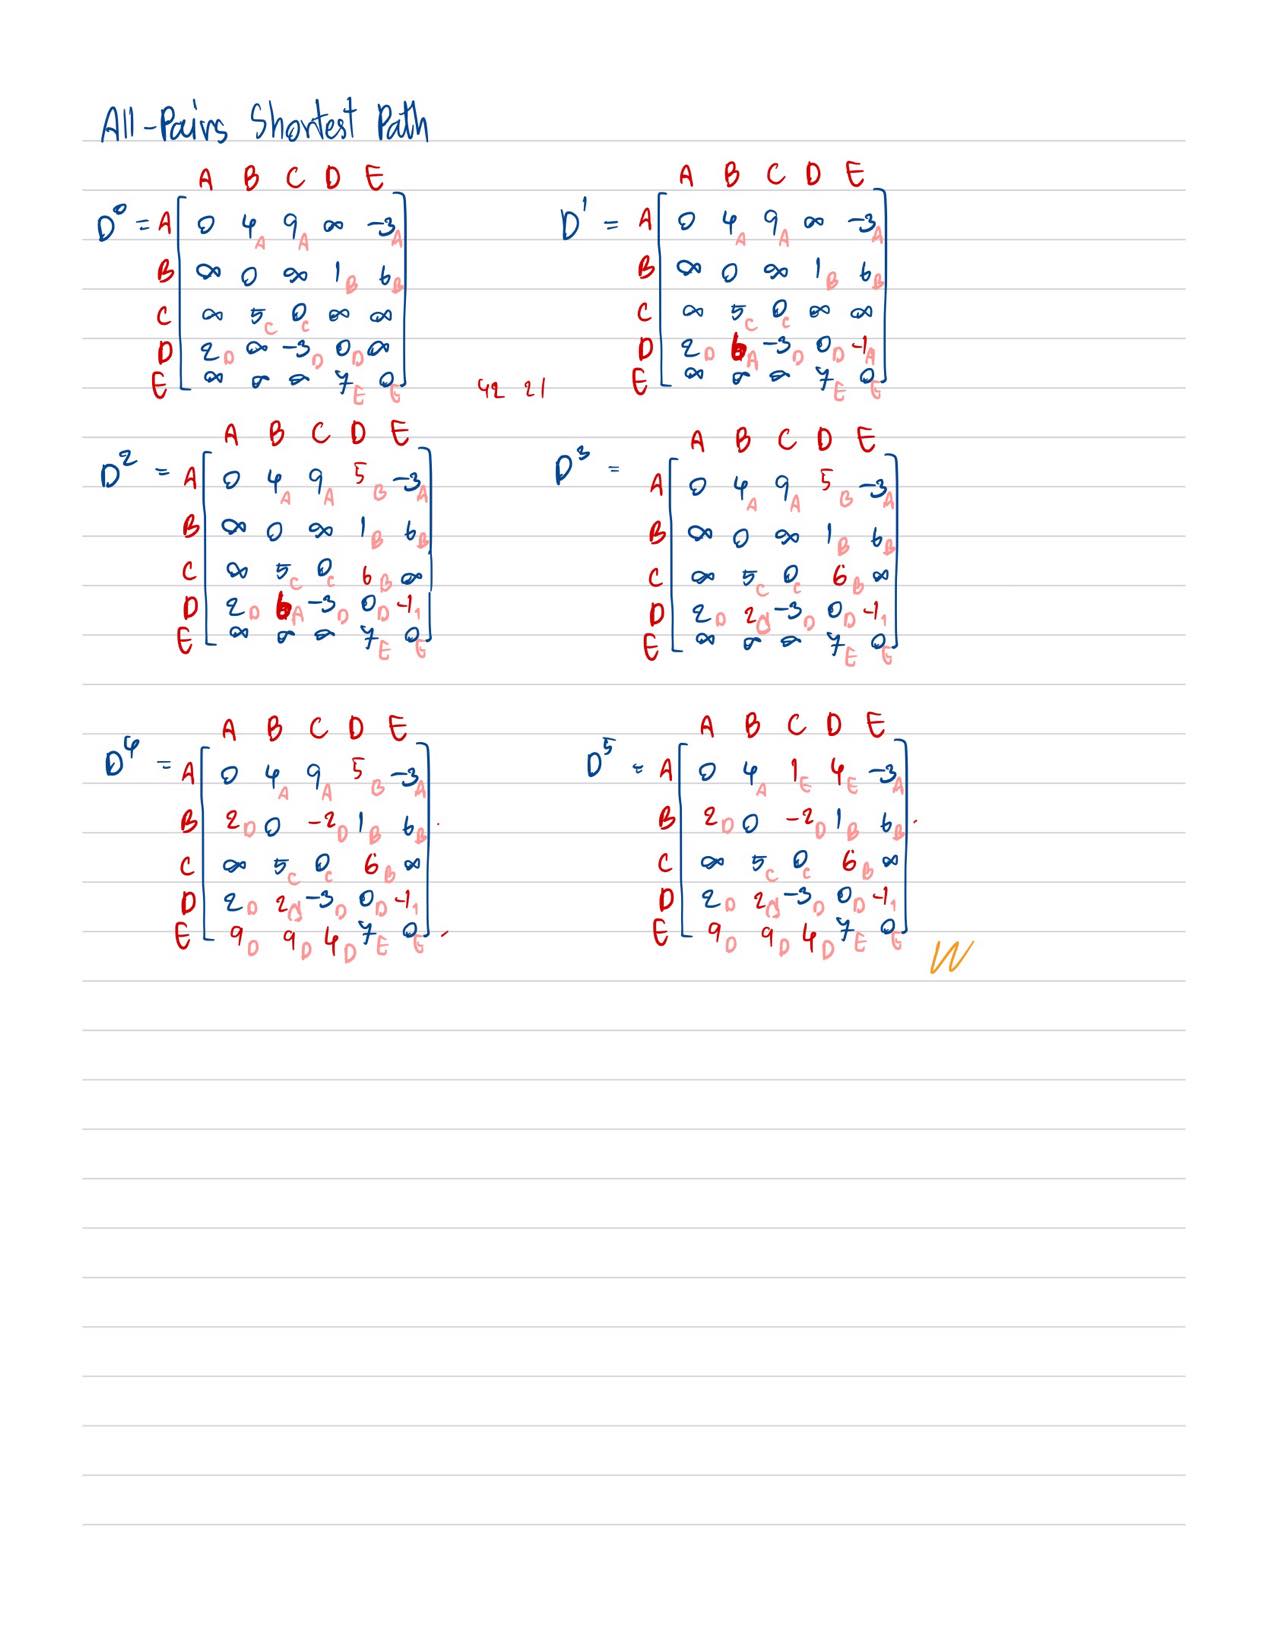 All-Pairs Shortest Path
A B C D E
D⁰ = A 0 4 A 9 A ∞ -3 A
B ∞ 0 ∞ 1 B 6 B
C ∞ 5 C 0 C ∞ ∞
D 2 D ∞ -3 D 0 D ∞
E ∞ ∞ ∞ 7 E 0 E
A B C D E
D¹ = A 0 4 A 9 A ∞ -3 A
B ∞ 0 ∞ 1 B 6 B
C ∞ 5 C 0 C ∞ ∞
D 2 D 6 A -3 D 0 D -1 A
E ∞ ∞ ∞ 7 E 0 E
42 21
A B C D E
D² = A 0 4 A 9 A 5 B -3 A
B ∞ 0 ∞ 1 B 6 B
C ∞ 5 C 0 C 6 B ∞
D 2 D 6 A -3 D 0 D -1 1
E ∞ ∞ ∞ 7 E 0 E
A B C D E
D³ = A 0 4 A 9 A 5 B -3 A
B ∞ 0 ∞ 1 B 6 B
C ∞ 5 C 0 C 6 B ∞
D 2 D 2 -3 D 0 D -1 1
E ∞ ∞ ∞ 7 E 0 E
A B C D E
D⁴ = A 0 4 A 9 A 5 B -3 A
B 2 D 0 -2 D 1 B 6 B
C ∞ 5 C 0 C 6 B ∞
D 2 D 2 -3 D 0 D -1 1
E 9 D 9 D 4 D 7 E 0 E
A B C D E
D⁵ = A 0 4 A 1 E 4 E -3 A
B 2 D 0 -2 D 1 B 6 B
C ∞ 5 C 0 C 6 B ∞
D 2 D 2 -3 D 0 D -1 1
E 9 D 9 D 4 D 7 E 0 E